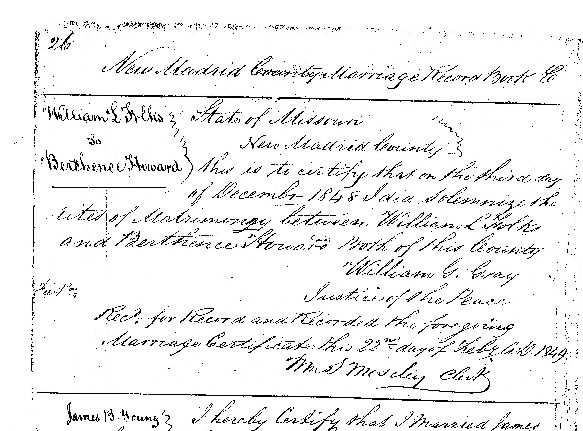 26
New Madrid County Marriage Record Book C
William L Folks
To
Berthence Howard
State of Missouri
New Madrid County
this is to certify that on the third day
of December 1848 I did Solemnize the
rites of Matrimoney between William L Folks
and Berthence Howard Both of this County
William G. Gray
Justice of the Peace
Recd. for Record and Recorded the foregoing
Marriage Certificate this 22nd day of Feby A.D. 1849
Wm. S Moseley Clerk
James B. Young
I hereby Certify that I Married James